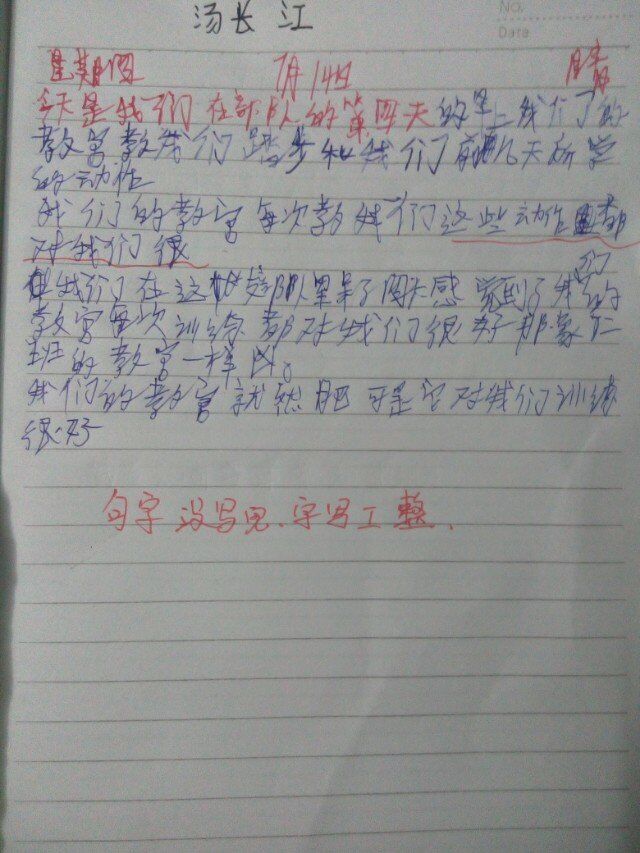 汤长江
NO.
Date
星期四 7月14日 晴
今天是我们在部队的第四天的早上我们的
教官教我们踏步和我们前几天所学
的动作
我们的教官每次教我们这些动作都
对我们很
但我们在这部队里呆了四天感觉到了我们的
教官每次训练都对我们很好那象二
班的教官一样凶。
我们的教官就然肥可是它对我们训练
很好
句字没写完、字写工整、